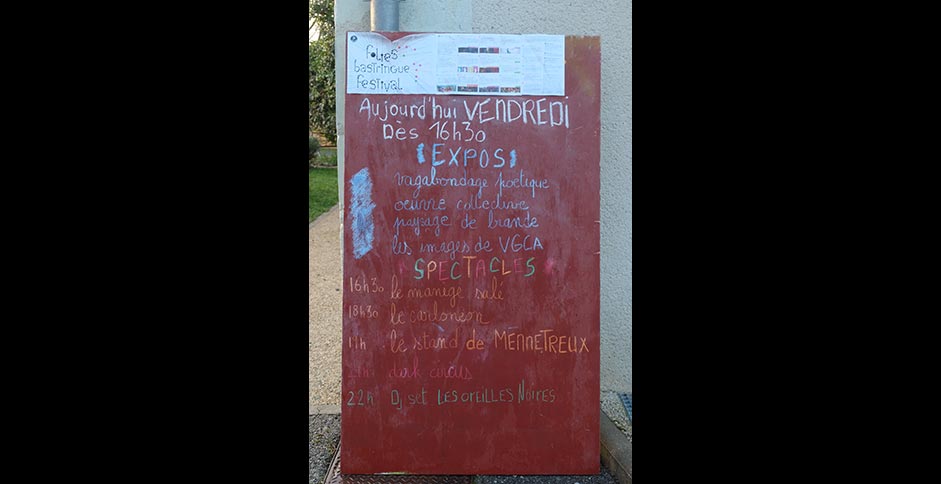 folies
bastringue
festival
Aujourd'hui VENDREDI
Dès 16h30
EXPOS
vagabondage poétique
oeuvre collective
paysage de brande
les images de VGCA
SPECTACLES
16h30 le manège salé
18h30 le carloneon
le stand de MENNETREUX
dark circus
22h Dj set LES OREILLES NOIRES